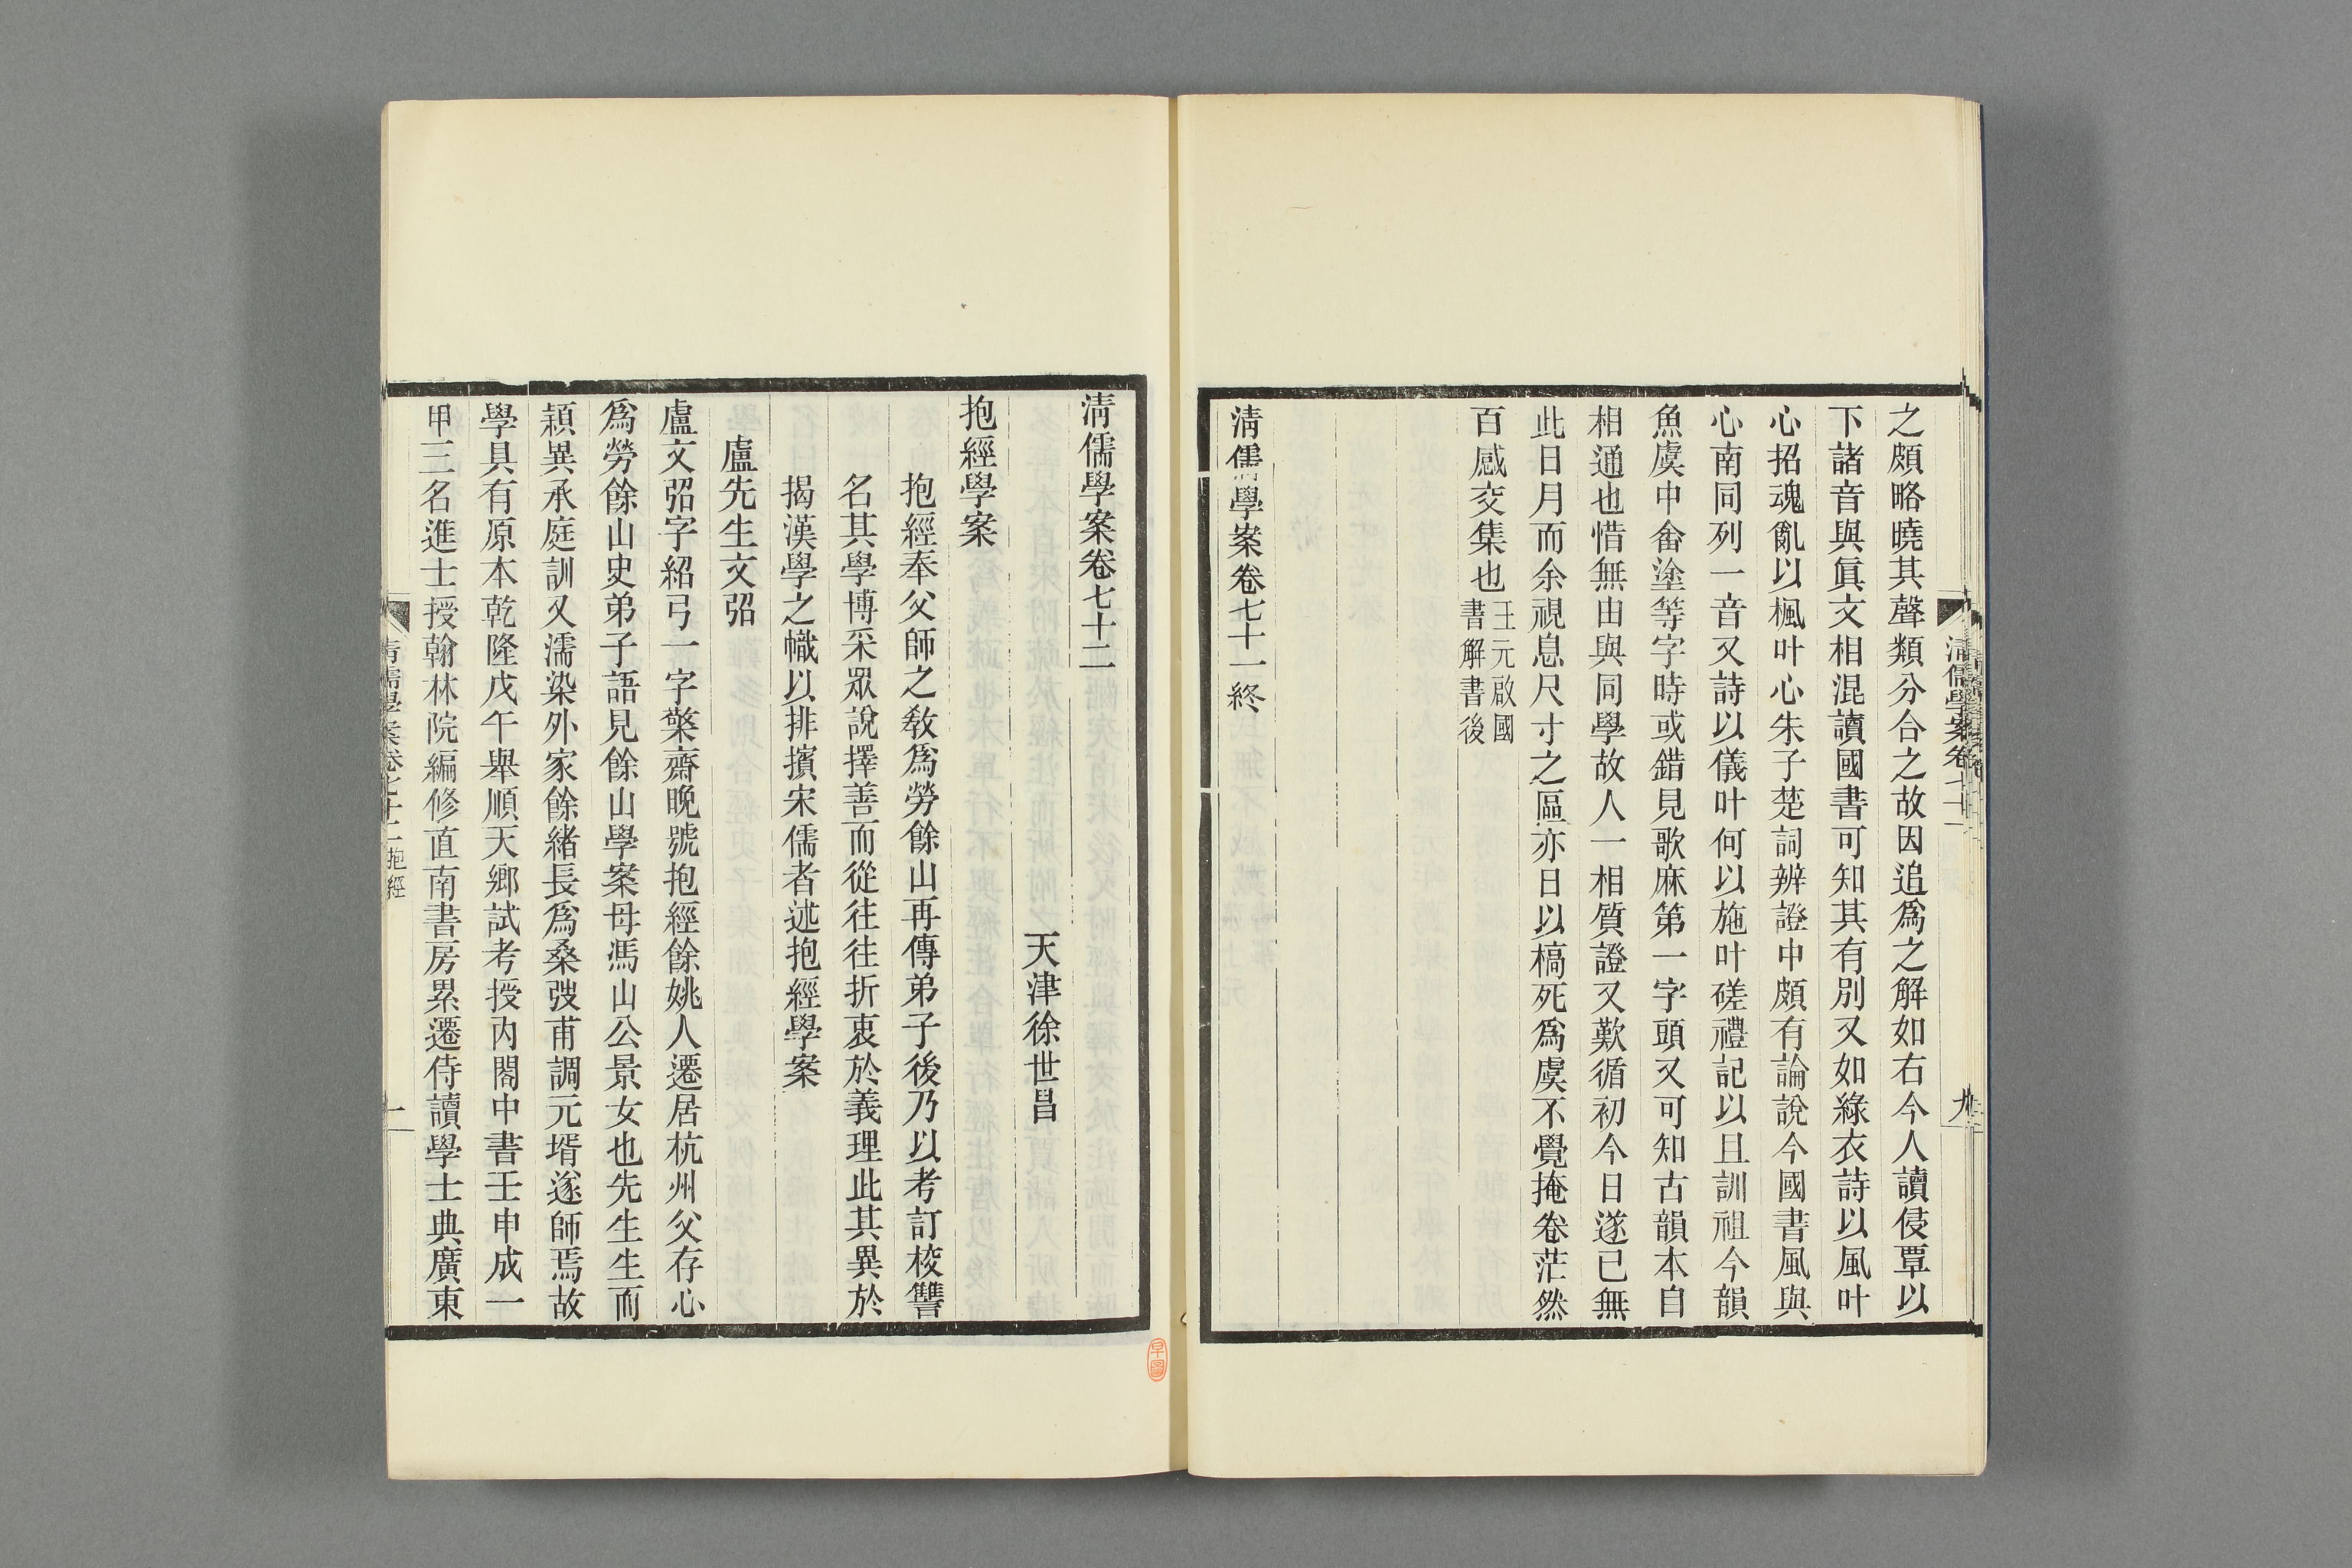 之頗略曉其聲類分合之故因追爲之解如右今人讀伎覃以
下諸音與眞文相混讀國書可知其有別又如綠衣詩以風叶
心招魂亂以楓叶心朱子楚詞辨證中頗有論說今國書風與
心南同列一音又詩以儀叶何以施叶磋禮記以且訓祖今韻
魚虞中畬塗等字時或錯見歌麻第一字頭又可知古韻本自
相通也惜無由與同學故人一相質證又歎循初今日遂已無
此日月而余視息尺寸之區亦日以槁死爲虞不覺掩卷茫然
百感交集也
王元啟國
書解書後
清儒學案卷七十一終
清儒學案卷七十二
天津徐世昌
抱經學案
抱經奉父師之敎爲勞餘山再傳弟子後乃以考訂校讐
名其學博采眾說擇善而從往往折衷於義理此其異於
揭漢學之幟以排擯宋儒者述抱經學案
盧先生文弨
盧文弨字紹弓一字檠齋晚號抱經餘姚人遷居杭州父存心
爲勞餘山史弟子語見餘山學案母馮山公景女也先生生而
穎異承庭訓又濡染外家餘緒長爲桑弢甫調元壻遂師焉故
學具有原本乾隆戊午舉順天鄉試考授內閣中書壬申成一
甲三名進士授翰林院編修直南書房累遷侍讀學士典廣東
清儒學案卷七十二
抱經
一